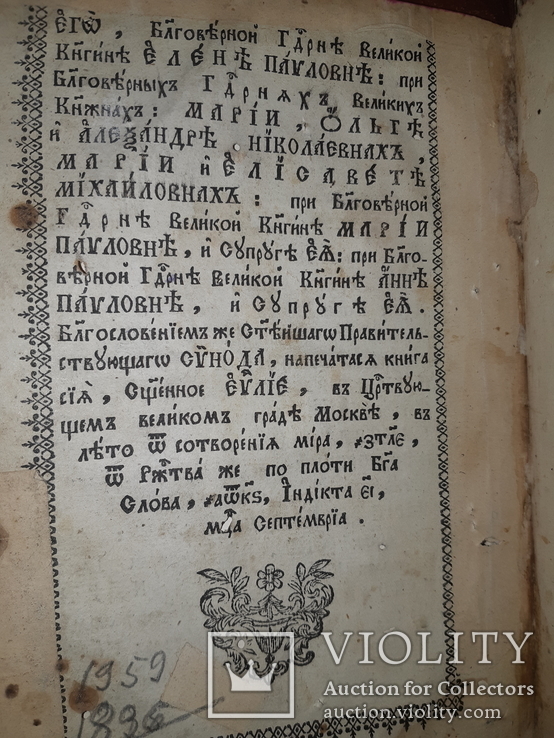 Є҆гѡ̀, Бл҃говѣ́рной Гдⷭ҇рнѣ Вели́кой
Кн҃ги́нѣ Є҆ле́нѣ Па́vловнѣ: при
Бл҃говѣ́рныхъ Гдⷭ҇рняхъ, Вели́кихъ
Кн҃жна́хъ: Марі́и, Ѻ҆́льгѣ
и҆ А҆леѯа́ндрѣ Нїкола́евнахъ,
Марі́и и҆ Є҆лїсаве́тѣ
Мїха́йловнахъ: при Бл҃говѣ́рной
Гдⷭ҇рнѣ Вели́кой Кн҃ги́нѣ Марі́и
Па́vловнѣ, и҆ Супру́гѣ Є҆ѧ̀: при Бл҃го-
вѣ́рной Гдⷭ҇рнѣ Вели́кой Кн҃ги́нѣ А҆́ннѣ
Па́vловнѣ, и҆ Супру́гѣ Є҆ѧ̀.
Бл҃гослове́нїемъ же Ст҃ѣ́йшагѡ Прави́тель-
ствующагѡ Сѵно́да, напеча́тасѧ кни́га
сїѧ̀, Сщ҃е́нное Є҆ѵⷢ҇лїе, въ Црⷭ҇твую-
щемъ вели́комъ гра́дѣ Москвѣ̀, въ
лѣ́то ѿ сотворе́нїѧ мі́ра, ҂зтл҃е,
ѿ Рж҇тва́ же по пло́ти Бг҃а
Сло́ва, ҂аѿк҃ѕ, І҆нді́кта є҃і,
мцⷭ҇а Септе́мврїа.
1959
1826
VIOLITY
Auction for Collectors
auction.violity.com